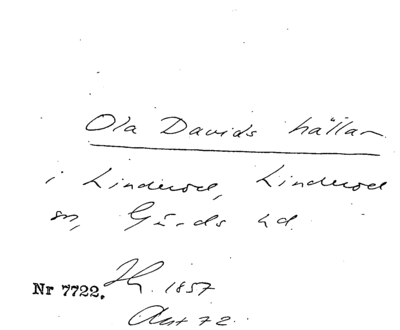 Ola Davids hällar
i Linderöd, Linderöd
sn, Gärds hd.
Nr 7722. 1857
72